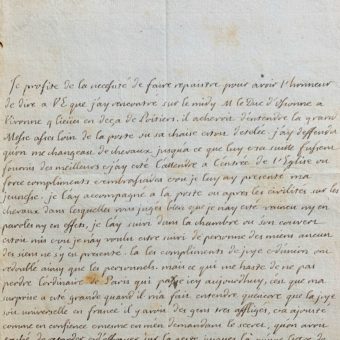 Je profite de la necessité de faire repaitre pour avoir l'honneur
de dire a V E que j'ay rencontré sur le midy M le Duc d'
a lieues en deça de Poitiers, il achevoit d'entendre la grand
Messe assés loin de la poste ou sa chaise etoit d'etelée, j'ay deffendu
qu'on me changeast de chevaux jusqu'a ce que luy et sa suitte fussent
fournis des meilleurs et j'ay eté l'attendre a l'entrée de l'Eglise ou
force compliments et embrassades ou je luy ay presenté ma
jeunesse. je l'ay accompagné a la poste ou apres les civilités sur les
chevaux dans lesquelles vous jugés bien que je n'ay eté vaincu ny en
paroles ny en effets, je l'ay suivi dans la chambre ou son couvert
etoit mis ou je n'ay voulu etre suivi de personne des miens aucun
des siens ne s'y est presenté. la les compliments de joye d'union ont
redoublé aussy que les personnels. mais ce qui me haste de ne pas
perdre l'ordinaire de Paris qui passe icy aujourdhuy, c'est que ma
surprise a eté grande quand il m'a fait entendre qu'encore que la joye
soit universelle en france il y avoit des gens tres affligés, et a ajouté
comme en confiance et mesme en m'en demandant le secret, qu'on avoit